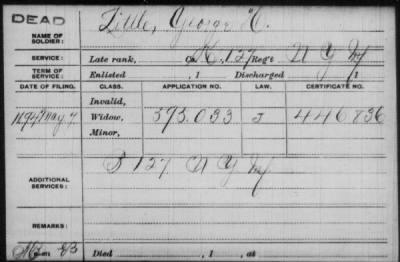 DEAD
NAME OF SOLDIER: Little, George H.
SERVICE: Late rank, Co. K, 127 Reg't N Y Inf
TERM OF SERVICE: Enlisted , 1 Discharged , 1
DATE OF FILING. CLASS. APPLICATION NO. LAW. CERTIFICATE NO.
Invalid,
May 7. Widow, 593.033 J 446836
Minor,
ADDITIONAL SERVICES: 127 N Y Inf
REMARKS:
Died , 1 , at